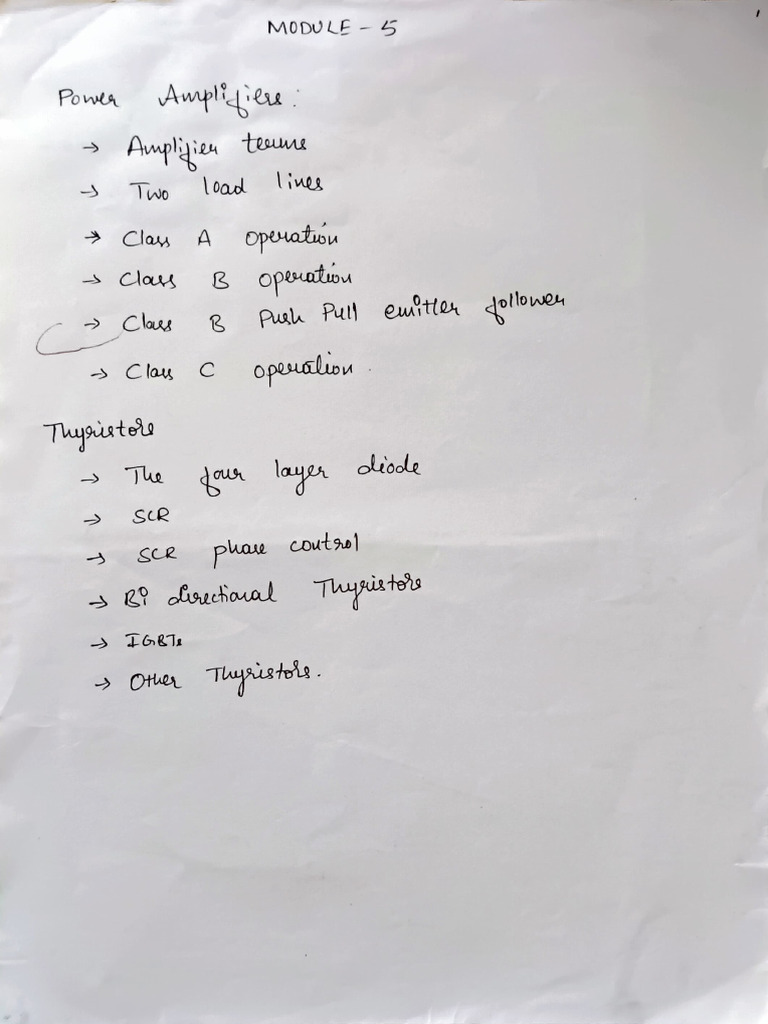 MODULE - 5
Power Amplifiers:
→ Amplifier terms
→ Two load lines
→ Class A operation
→ Class B operation
→ Class B Push Pull emitter follower
→ Class C operation.
Thyristors
→ The four layer diode
→ SCR
→ SCR phase control
→ Bi directional Thyristors
→ IGBTs
→ Other Thyristors.